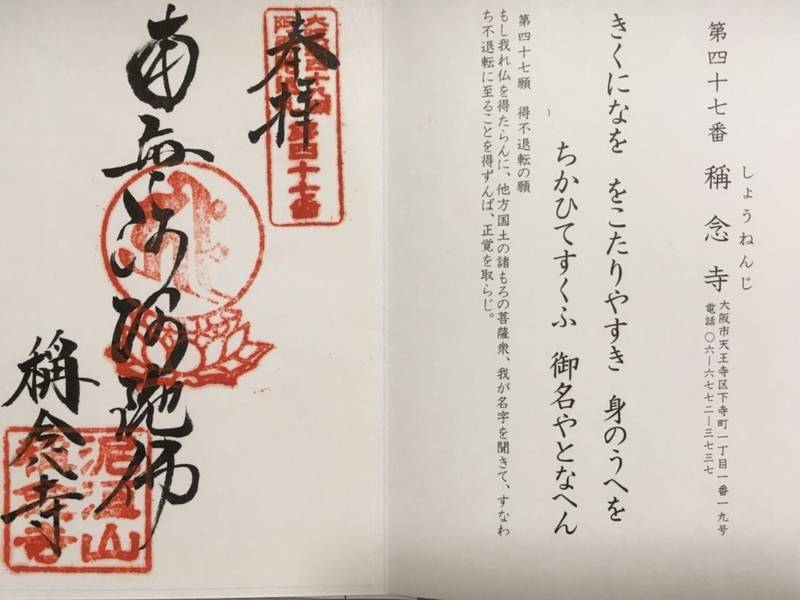 第四十七番 稱念寺
しょうねんじ
大阪市天王寺区下寺町一丁目一番一九号
電話〇六ー六七七二ー三七三七
きくになを をこたりやすき 身のうへを
ちかひてすくふ 御名やとなへん
第四十七願 得不退転の願
もし我れ仏を得たらんに、他方国土の諸もろの菩薩衆、我が名字を聞きて、すなわ
ち不退転に至ることを得ずんば、正覚を取らじ。
奉拝
南無阿弥陀佛
稱念寺